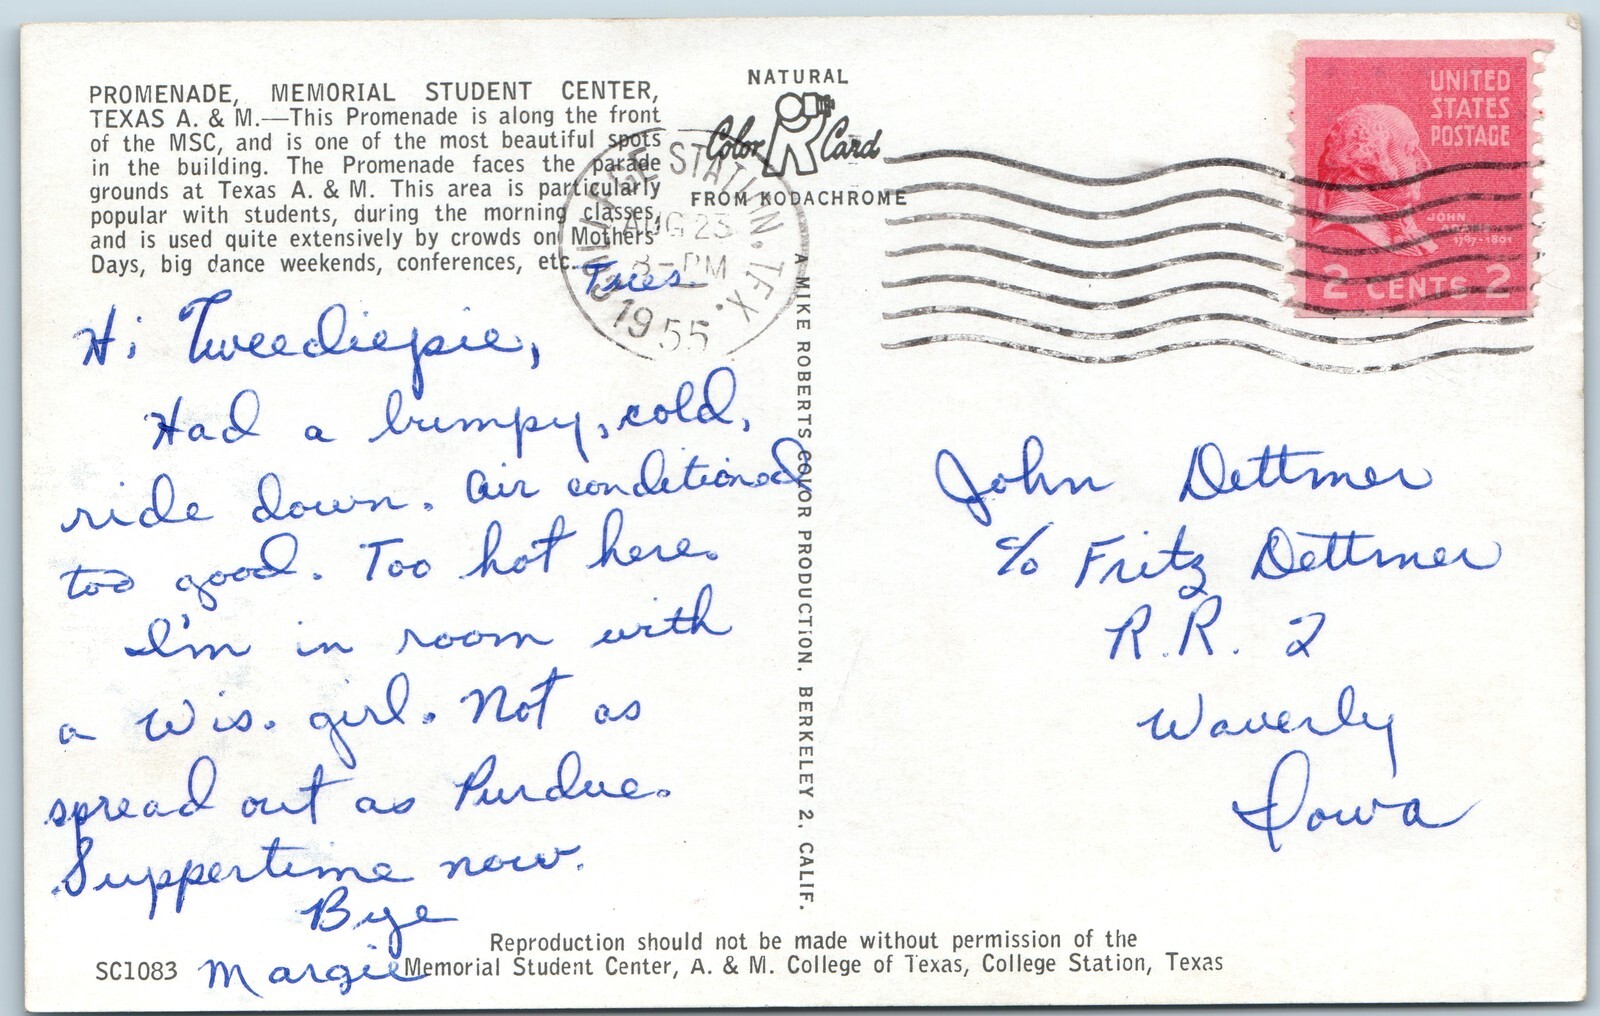 PROMENADE, MEMORIAL STUDENT CENTER,
TEXAS A. & M.—This Promenade is along the front
of the MSC, and is one of the most beautiful spots
in the building. The Promenade faces the parade
grounds at Texas A. & M. This area is particularly
popular with students, during the morning classes,
and is used quite extensively by crowds on Mothers'
Days, big dance weekends, conferences, etc.
Tues.
Hi Tweediepie,
Had a bumpy, cold,
ride down. Air conditioned
too good. Too hot here.
I'm in room with
a Wis. girl. Not as
spread out as Purdue.
Suppertime now.
Bye
Margie
SC1083
NATURAL
Color Card
FROM KODACHROME
COLLEGE STATION. TEX.
AUG 23
8-PM
1955
A MIKE ROBERTS COLOR PRODUCTION. BERKELEY 2, CALIF.
UNITED
STATES
POSTAGE
JOHN
ADAMS
1797-1801
2 CENTS 2
John Dettmer
c/o Fritz Dettmer
R.R. 2
Waverly
Iowa
Reproduction should not be made without permission of the
Memorial Student Center, A. & M. College of Texas, College Station, Texas